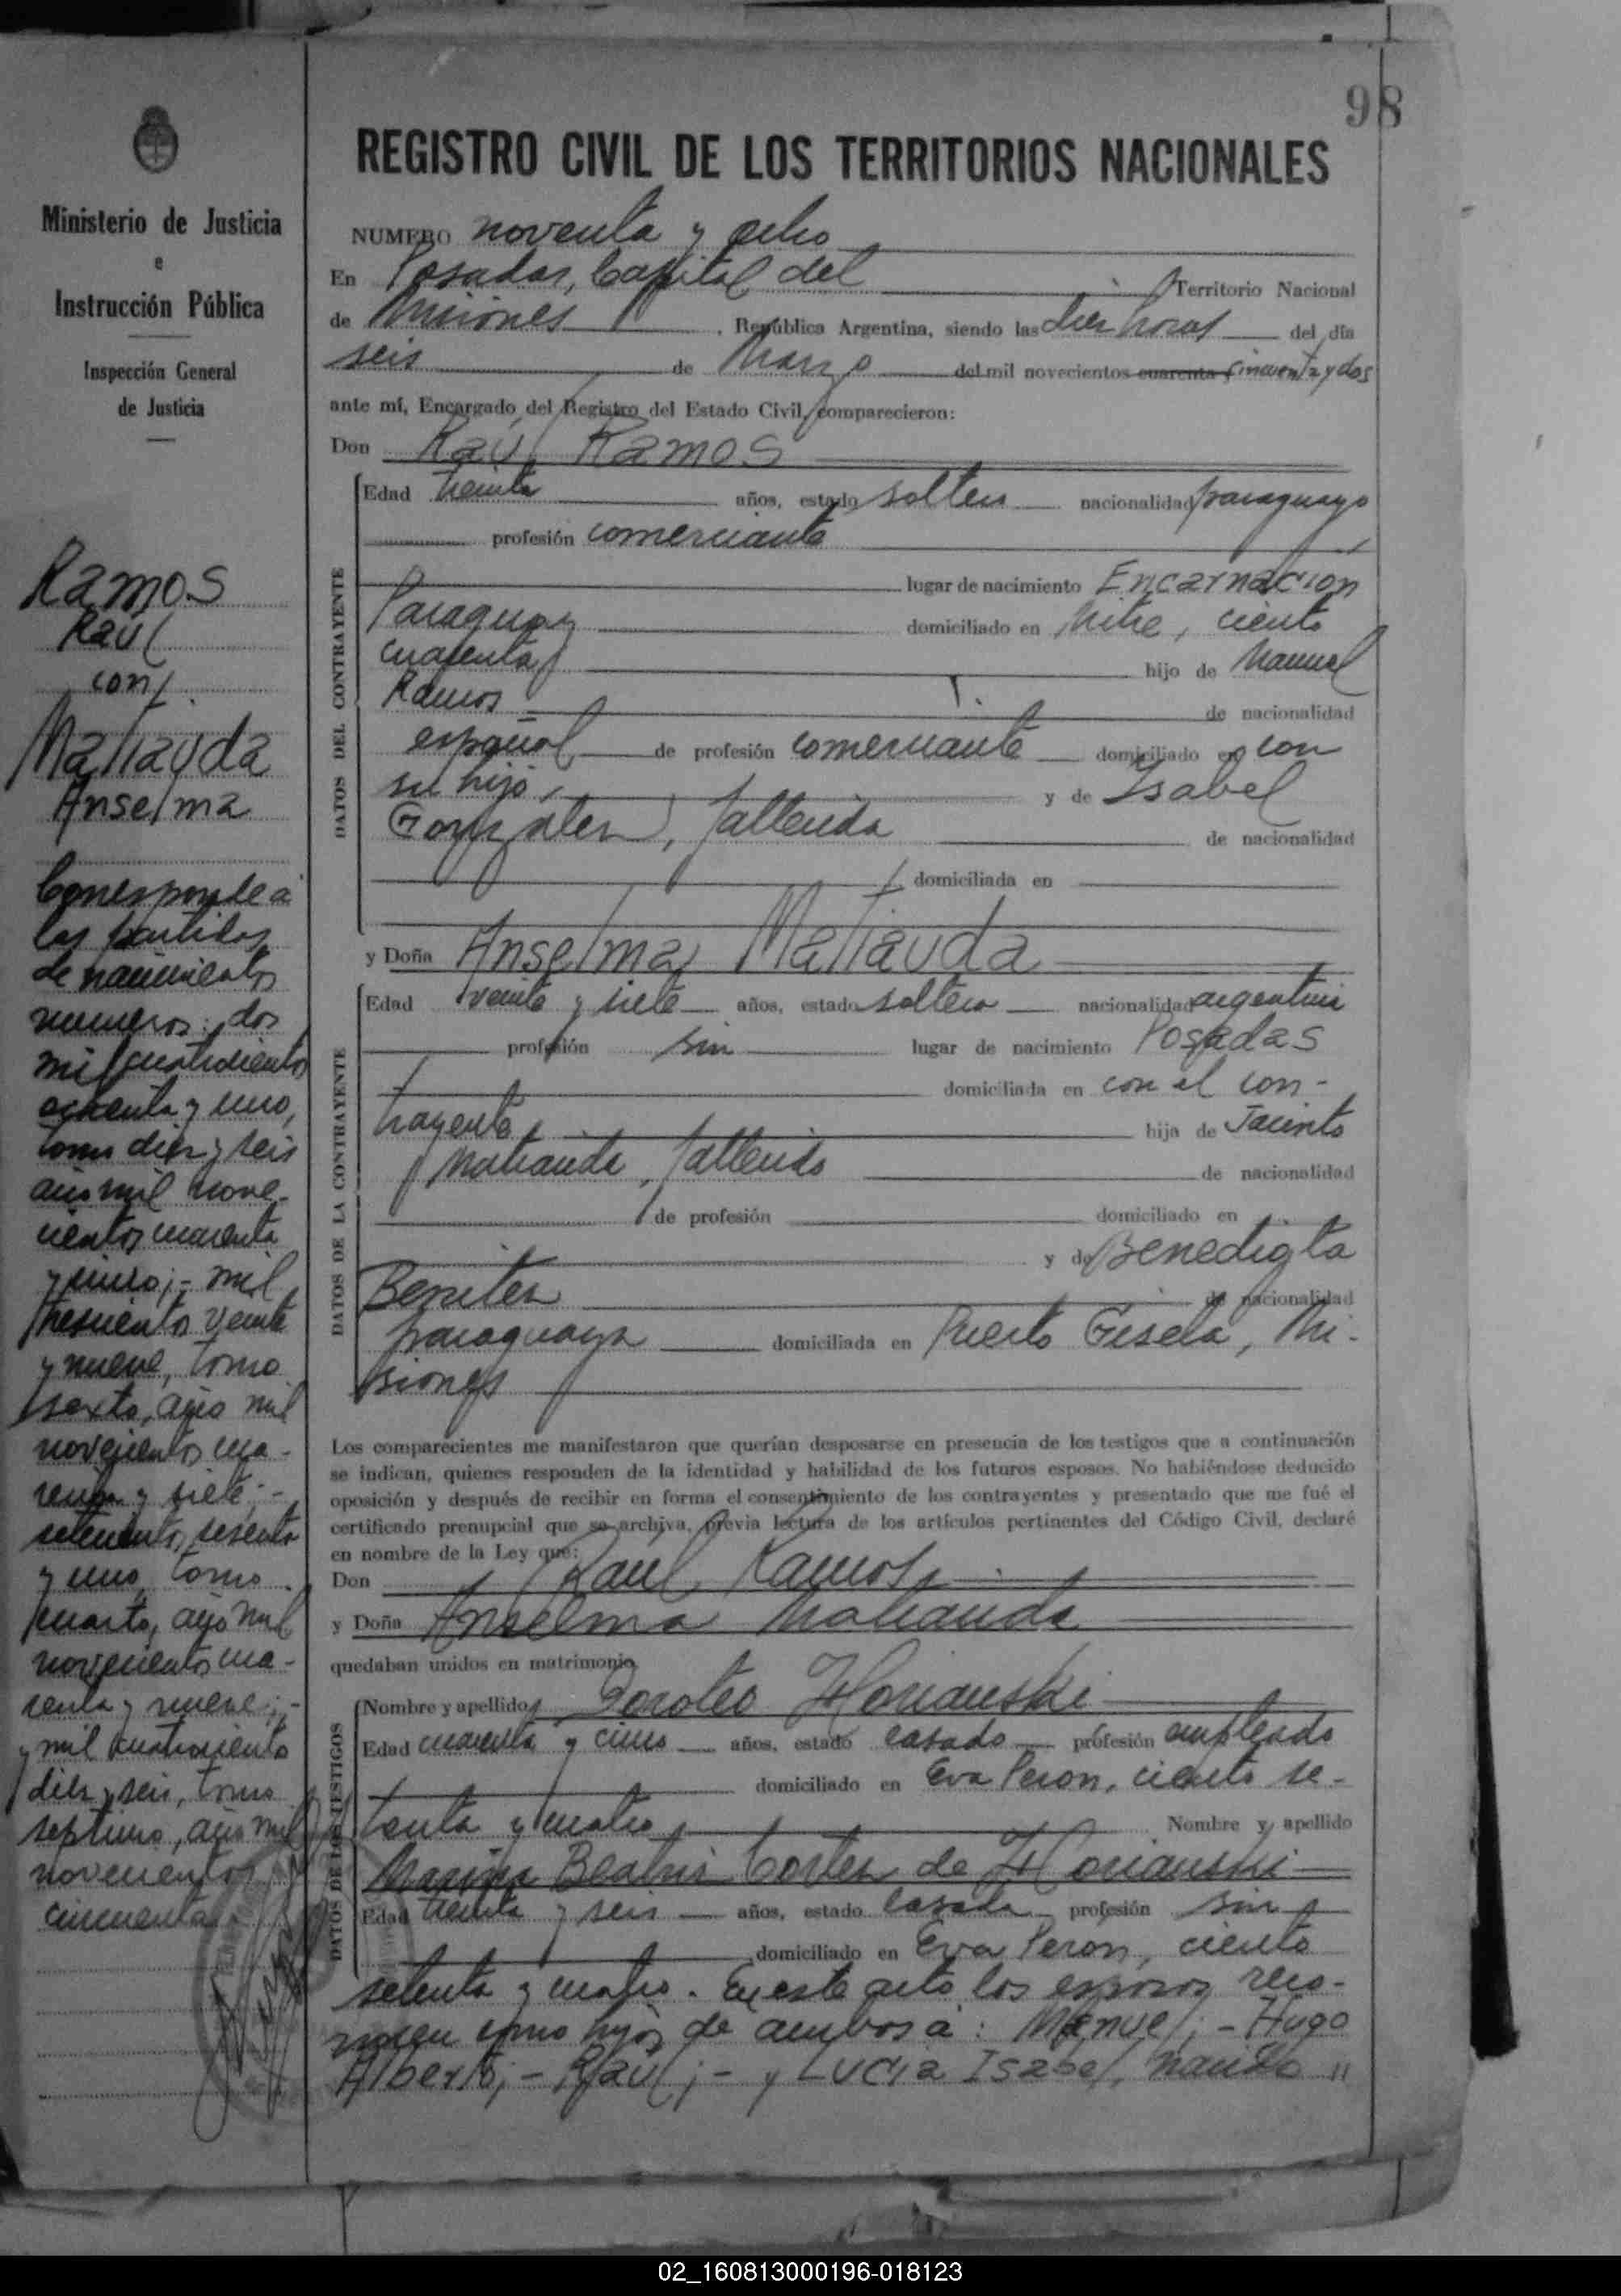 98
Ministerio de Justicia
e
Instrucción Pública
Inspección General
de Justicia
Ramos
Raul
con
Matiauda
Anselma
Corresponde a
las partidas
de nacimientos
numeros: dos
mil cuatrocientos
ochenta y uno,
tomo diez y seis
año mil nove-
cientos cuarenta
y cinco;- mil
trescientos veinte
y nueve, tomo
sexto, año mil
novecientos cua-
renta y siete;-
setecientos sesenta
y uno, tomo
cuarto, año mil
novecientos cua-
renta y nueve;-
y mil cuatrocientos
diez y seis, tomo
septimo, año mil
novecientos
cincuenta
REGISTRO CIVIL DE LOS TERRITORIOS NACIONALES
NUMERO noventa y ocho
En Posadas, Capital del Territorio Nacional
de Misiones, República Argentina, siendo las diez horas del día
seis de Marzo del mil novecientos cuarenta y cincuenta y dos
ante mí, Encargado del Registro del Estado Civil, comparecieron:
Don Raul Ramos
DATOS DEL CONTRAYENTE
Edad treinta años, estado soltero nacionalidad paraguayo
profesión comerciante
lugar de nacimiento Encarnacion
Paraguay domiciliado en Mitre, ciento
cuarenta hijo de Manuel
Ramos de nacionalidad
español de profesión comerciante domiciliado en con
su hijo, y de Isabel
Gonzalez, fallecida de nacionalidad
domiciliada en
y Doña Anselma Matiauda
DATOS DE LA CONTRAYENTE
Edad veinte y siete años, estado soltera nacionalidad argentina
profesión sin lugar de nacimiento Posadas
domiciliada en con el con-
trayente hija de Jacinto
Matiauda, fallecido de nacionalidad
de profesión domiciliado en
y de Benedicta
Benitez de nacionalidad
paraguaya domiciliada en Puerto Gisela, Mi-
siones
Los comparecientes me manifestaron que querían desposarse en presencia de los testigos que a continuación
se indican, quienes responden de la identidad y habilidad de los futuros esposos. No habiéndose deducido
oposición y después de recibir en forma el consentimiento de los contrayentes y presentado que me fué el
certificado prenupcial que se archiva, previa lectura de los artículos pertinentes del Código Civil, declaré
en nombre de la Ley que:
Don Raul Ramos
y Doña Anselma Matiauda
quedaban unidos en matrimonio
DATOS DE LOS TESTIGOS
Nombre y apellido Doroteo Horianski
Edad cuarenta y cinco años, estado casado profesión empleado
domiciliado en Eva Peron, ciento se-
tenta y cuatro Nombre y apellido
Beatris Cortes de Horianski
Edad treinta y seis años, estado casada profesión sin
domiciliado en Eva Peron, ciento
setenta y cuatro. En este acto los esposos reco-
nocen como hijos de ambos a: Manuel;- Hugo
Alberto;- Raul;- y Lucia Isabel, nacido "
02_160813000196-018123